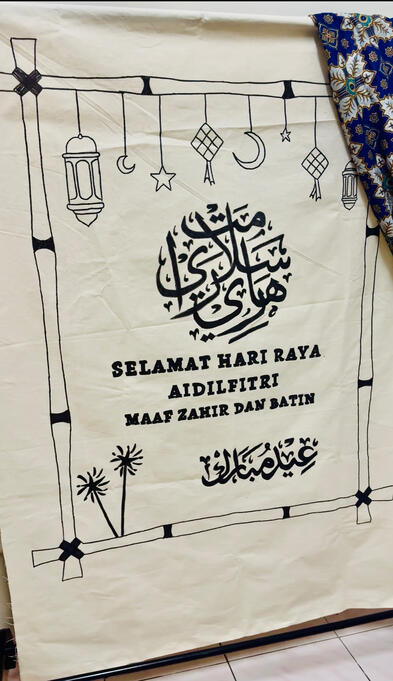 سلامت هاري راي
SELAMAT HARI RAYA
AIDILFITRI
MAAF ZAHIR DAN BATIN
عيد مبارك